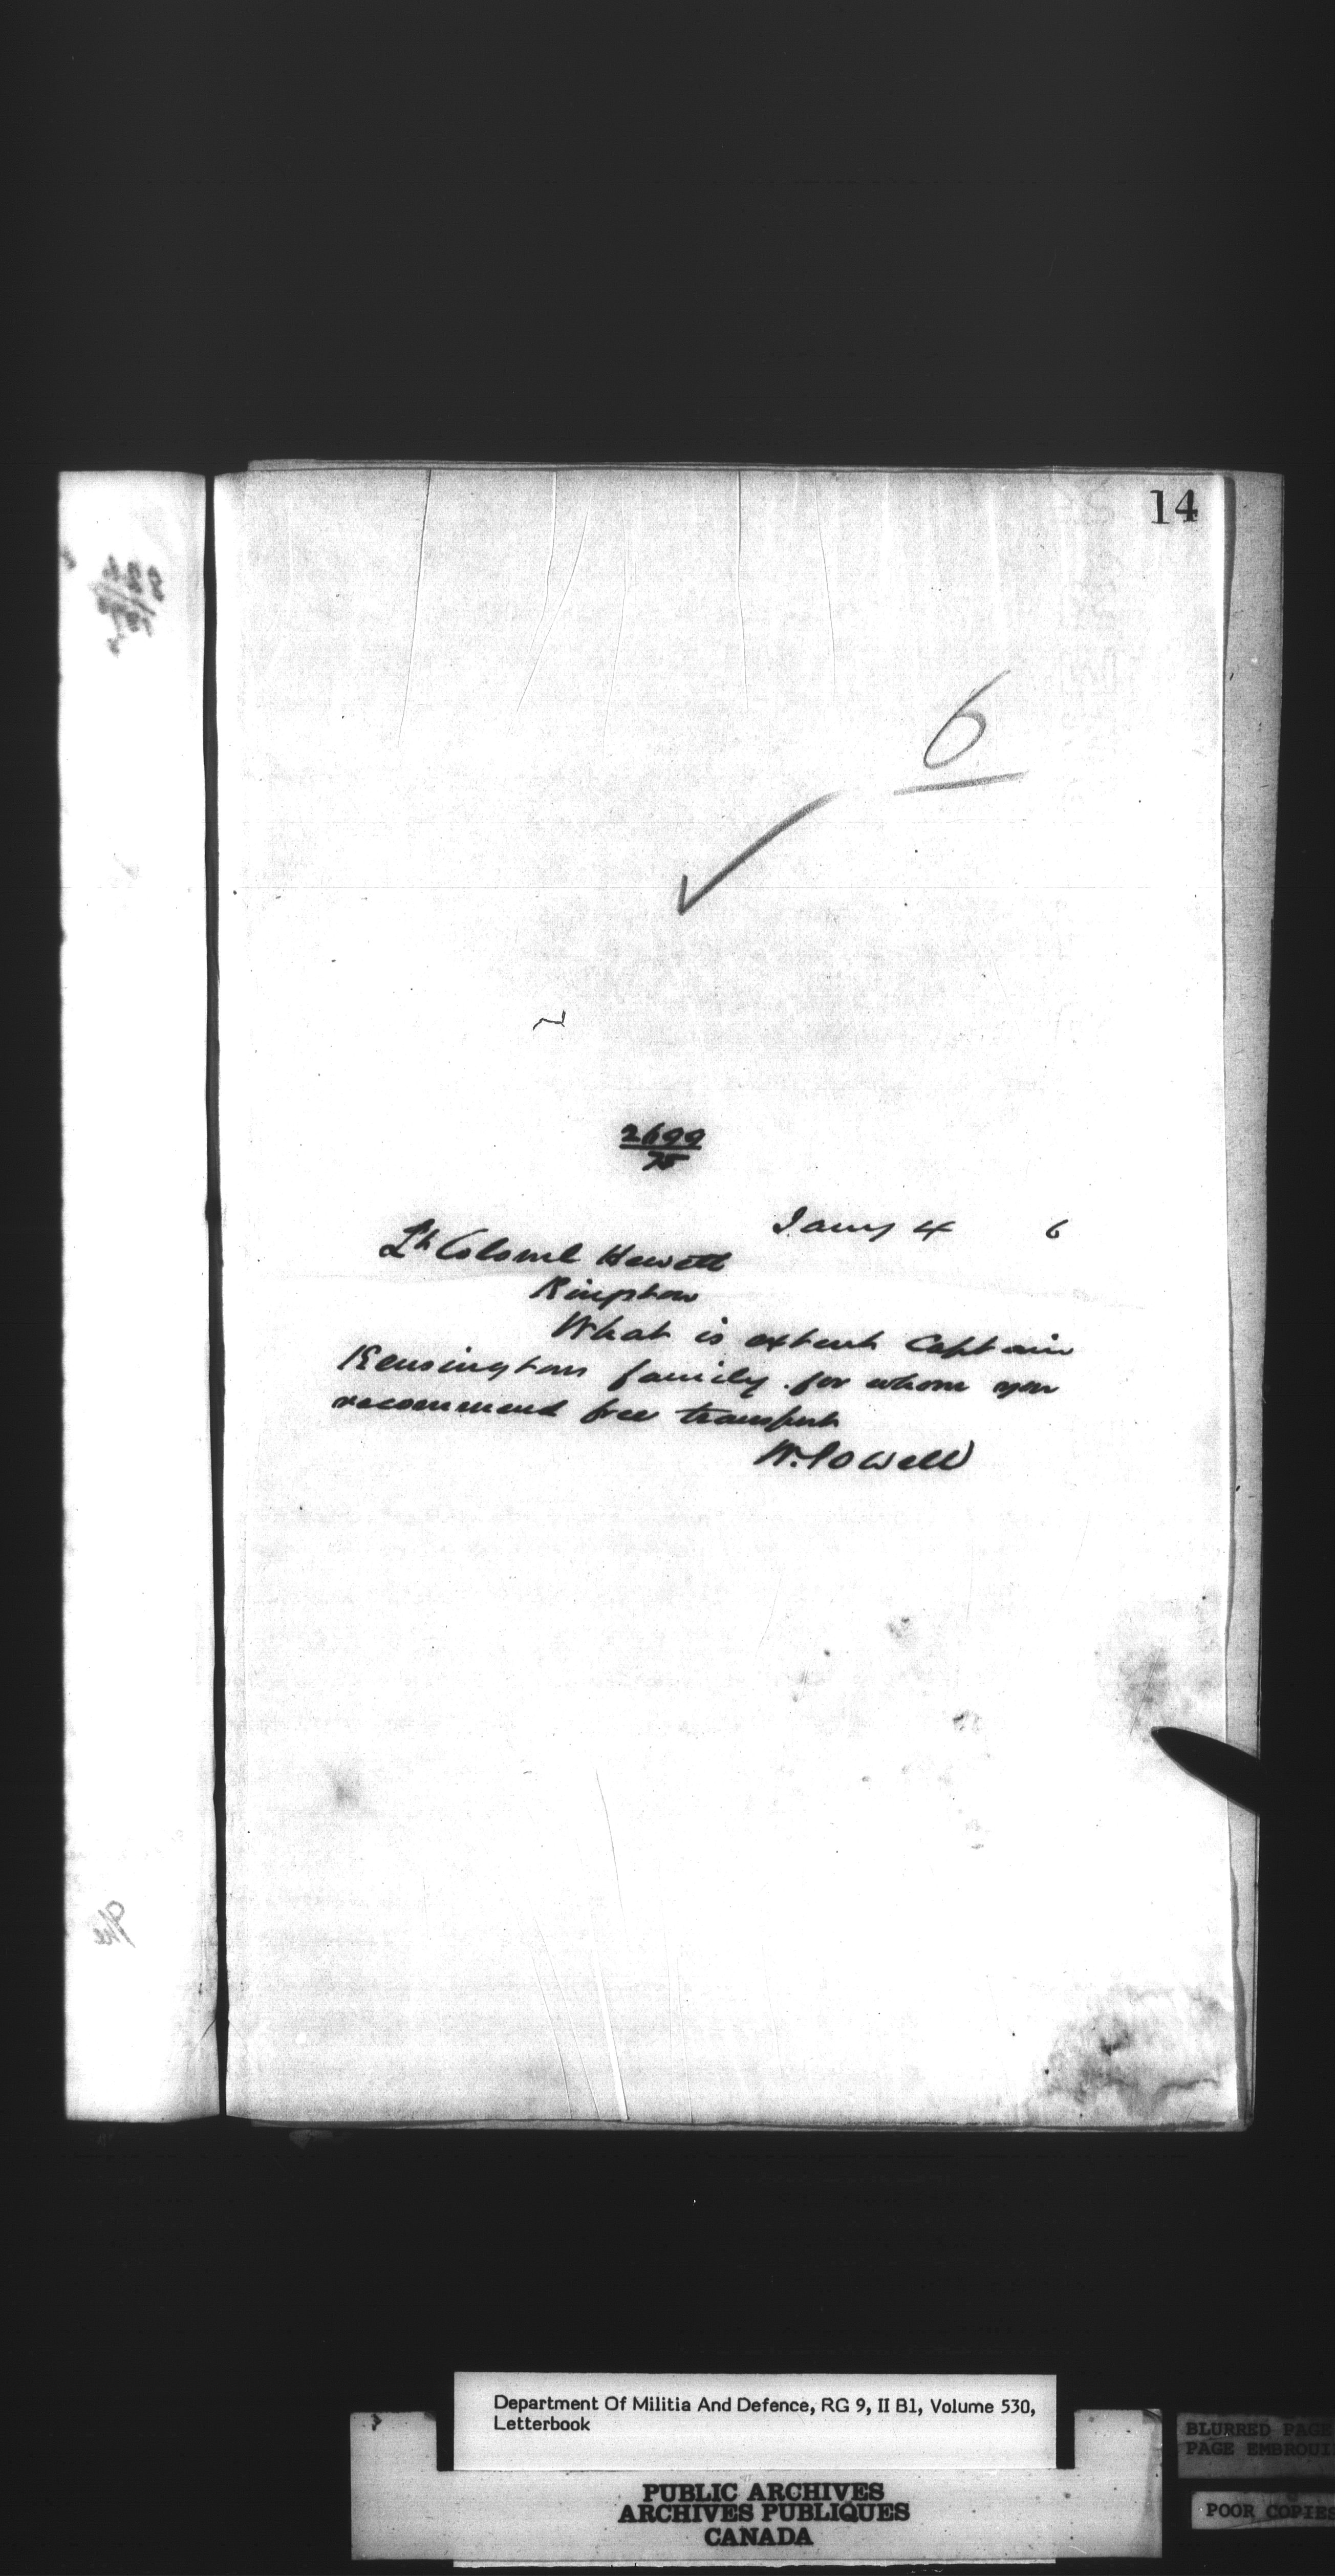 14
6
2699
75
Jany 4 6
Lt Colonel Hewett
Kingston
What is extent Captain
Kensingtons family for whom you
recommend free transport
W. Powell
Department Of Militia And Defence, RG 9, II B1, Volume 530,
Letterbook
PUBLIC ARCHIVES
ARCHIVES PUBLIQUES
CANADA
BLURRED PAGE
PAGE EMBROUI
POOR COPIES